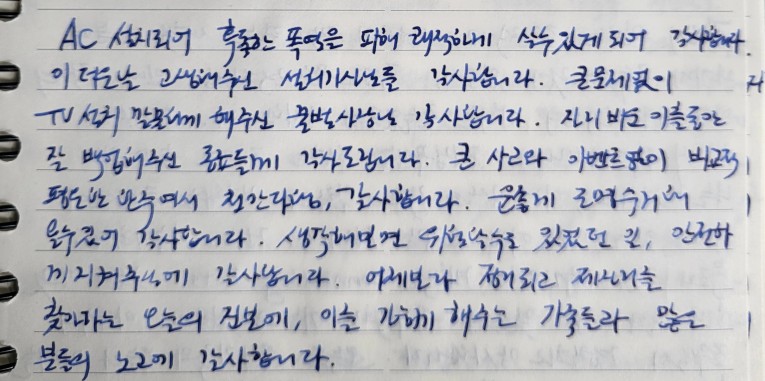 AC 설치되어 혹독한 폭염은 피해 쾌적하게 살수있게 되어 감사합니다.
이 더운날 고생해주신 설치기사님들 감사합니다. 큰문제없이
TV 설치 말끔하게 해주신 꿀벌사장님 감사합니다. 자리 비운 이틀동안
잘 백업해주신 동료들께 감사드립니다. 큰 사고와 이벤트없이 비교적
평온한 한주여서 감사합니다. 운좋게
감사합니다. 생각해보면 있었던 일, 안전하
게 지켜주심에 감사합니다. 어제보다 정리되고 제자리를
찾아가는 오늘의 진보에, 이를 가능케 해주는 가족들과 많은
분들의 노고에 감사합니다.